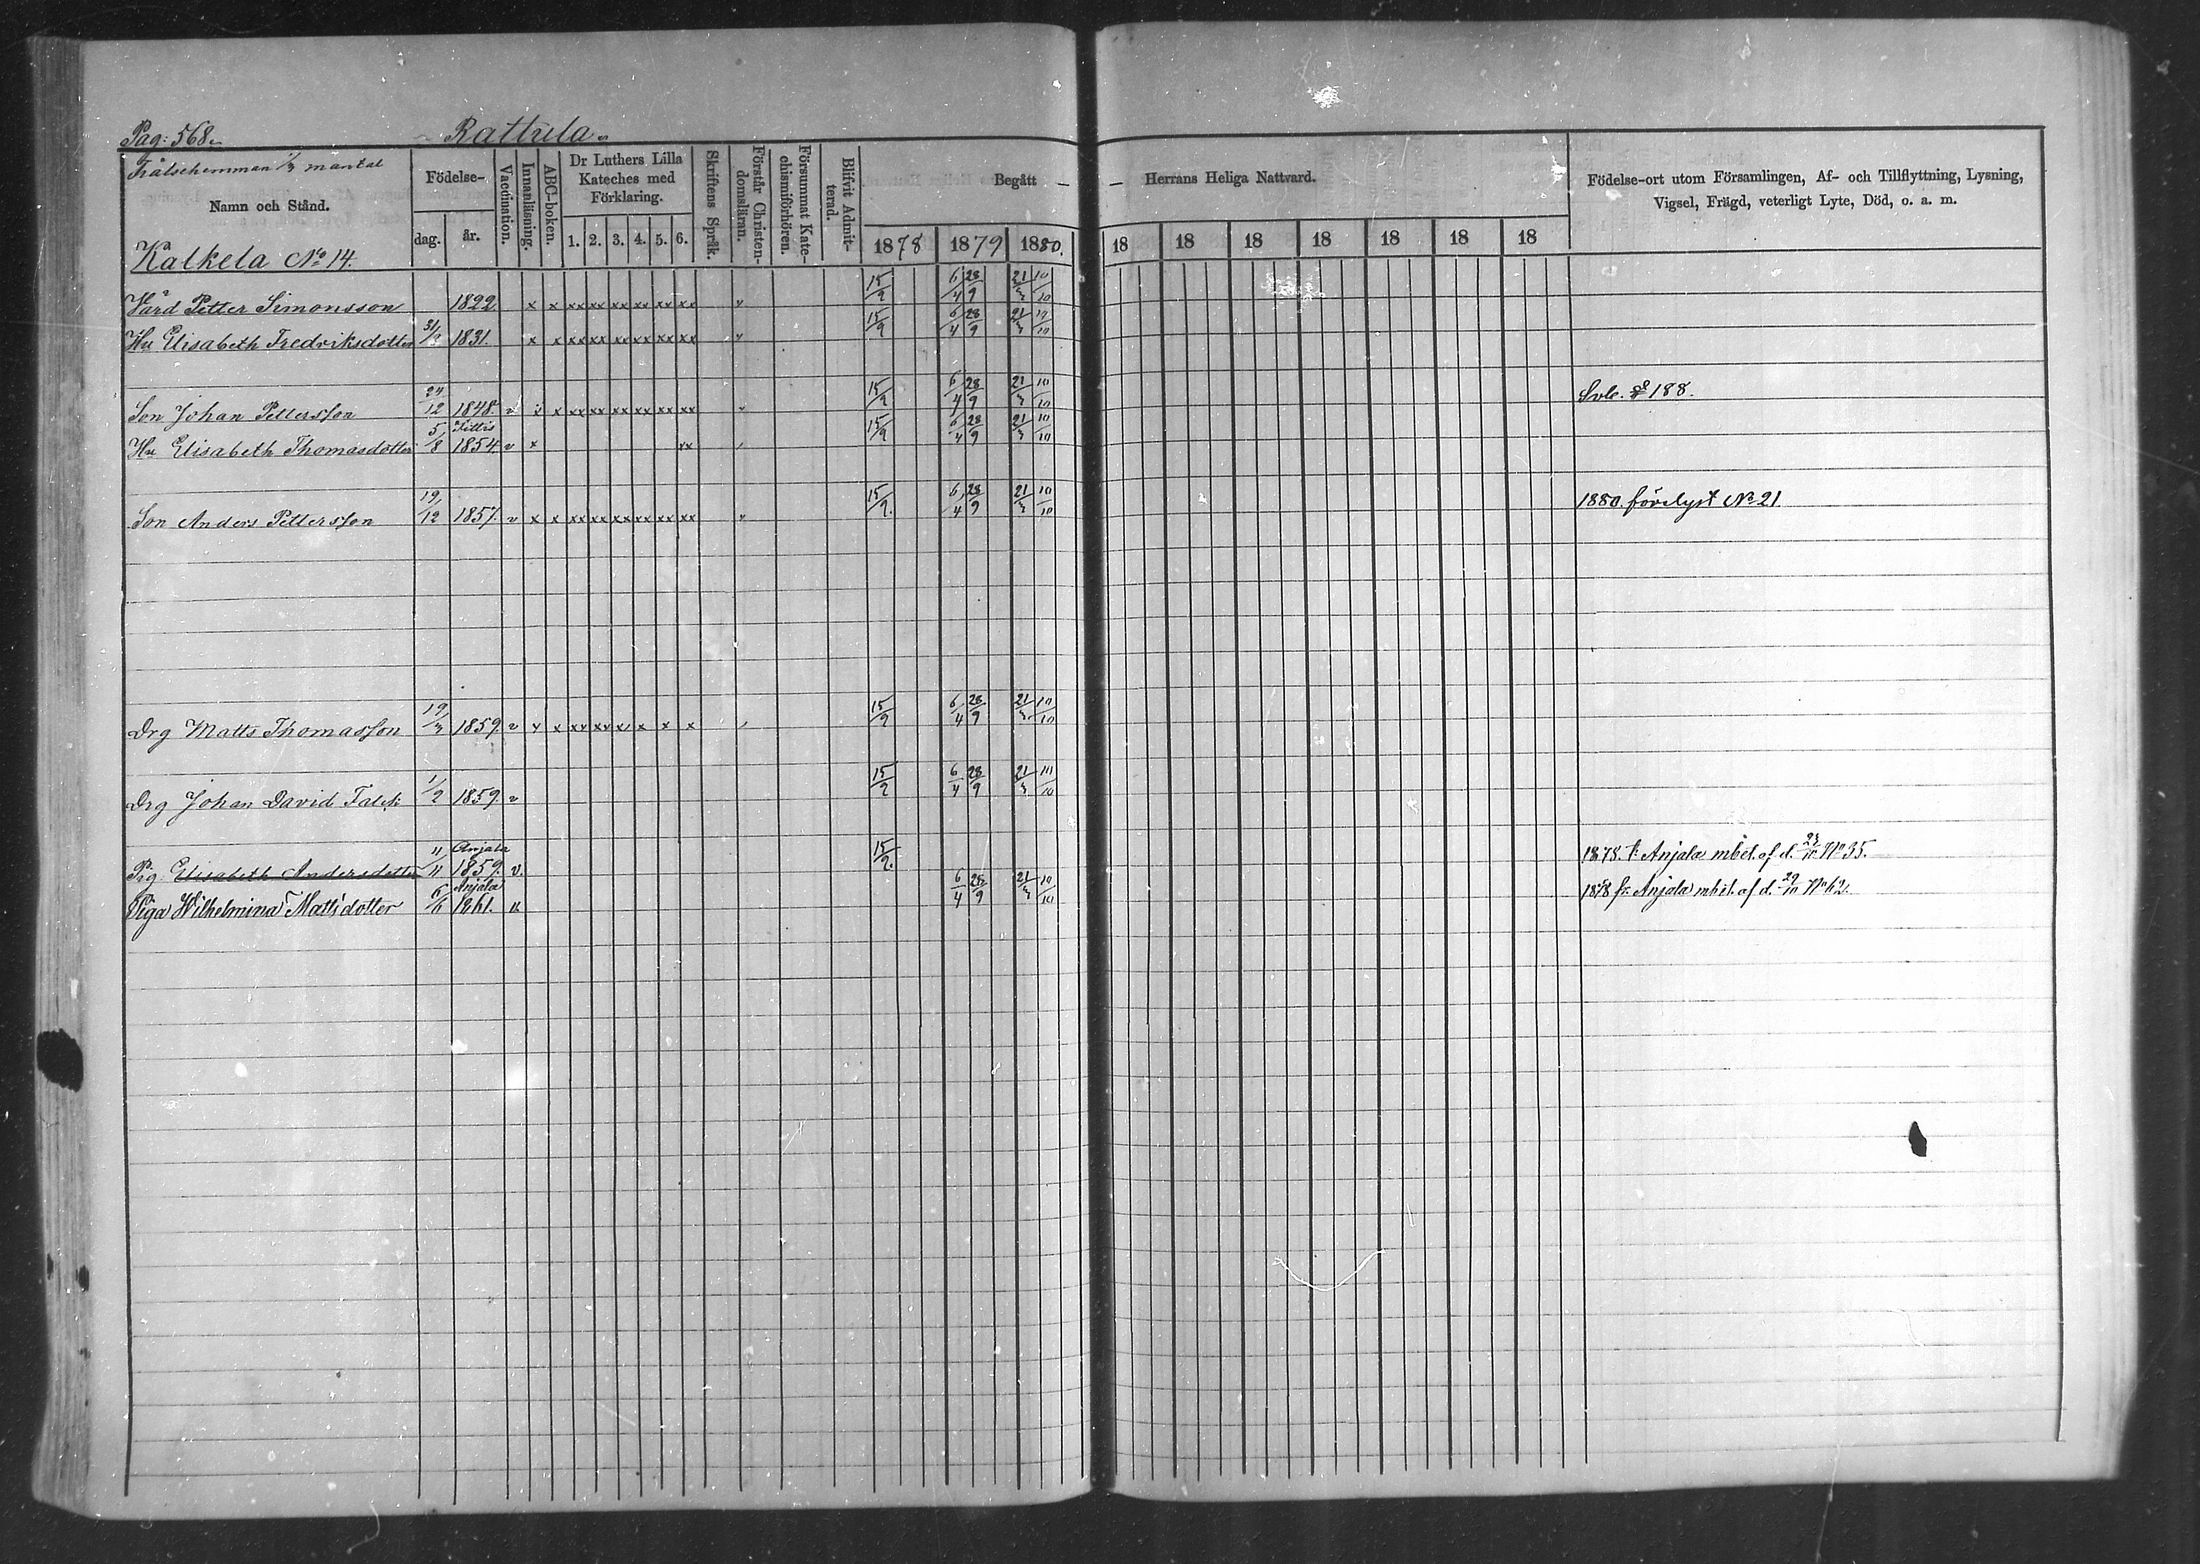 Pag: 568. Rattula
Frälsehemman 1/3 mantal
Namn och Stånd.
Kalkela No 14.
Födelse-
dag. år.
Vaccination.
Innanläsning.
ABC-boken.
Dr Luthers Lilla
Kateches med
Förklaring.
1. 2. 3. 4. 5. 6.
Skriftens Språk.
Förstår Christen-
domsläran.
Försummat Kate-
chismiförhören.
Blifvit Admit-
terad.
Begått — — Herrans Heliga Nattvard.
1878 1879 1880. 18 18 18 18 18 18 18
Födelse-ort utom Församlingen, Af- och Tillflyttning, Lysning,
Vigsel, Frägd, veterligt Lyte, Död, o. a. m.
Värd Petter Simonsson 1822 x x xx xx xx xx xx xx v 15/9 6/4 28/9 21/3 10/10
Hu Elisabeth Fredriksdotter 1831. x x xx xx xx xx xx xx v 15/9 6/4 28/9 21/3 10/10
Son Johan Pettersson 24/12 1848. v x x xx xx xx xx xx xx v 15/9 6/4 28/9 21/3 10/10 188.
Hu Elisabeth Thomasdotter 5/8 1854. v x xx 15/9 6/4 28/9 21/3 10/10
Son Anders Pettersson 19/12 1857. v x x xx xx xx xx xx xx v 15/9. 6/4 28/9 21/3 10/10 1880. förelyst No 21.
Drg Matts Thomasson 19/3 1859. v x x xx xx xx x x x 15/9 6/4 28/9 21/3 10/10
Drg Johan David Falck 1/2 1859. v 15/9 6/4 28/9 21/3 10/10
Anjala
Pig. Elisabeth Andersdotter 11/11 1859. v. 15/9. 1878. t. Anjala mbet. af d. No 35.
Anjala
Piga Wilhelmina Mattsdotter 6/6 1861. v. 6/4 28/9 21/3 10/10 1878 fr. Anjala mbet. af d. 29/10 No 62.